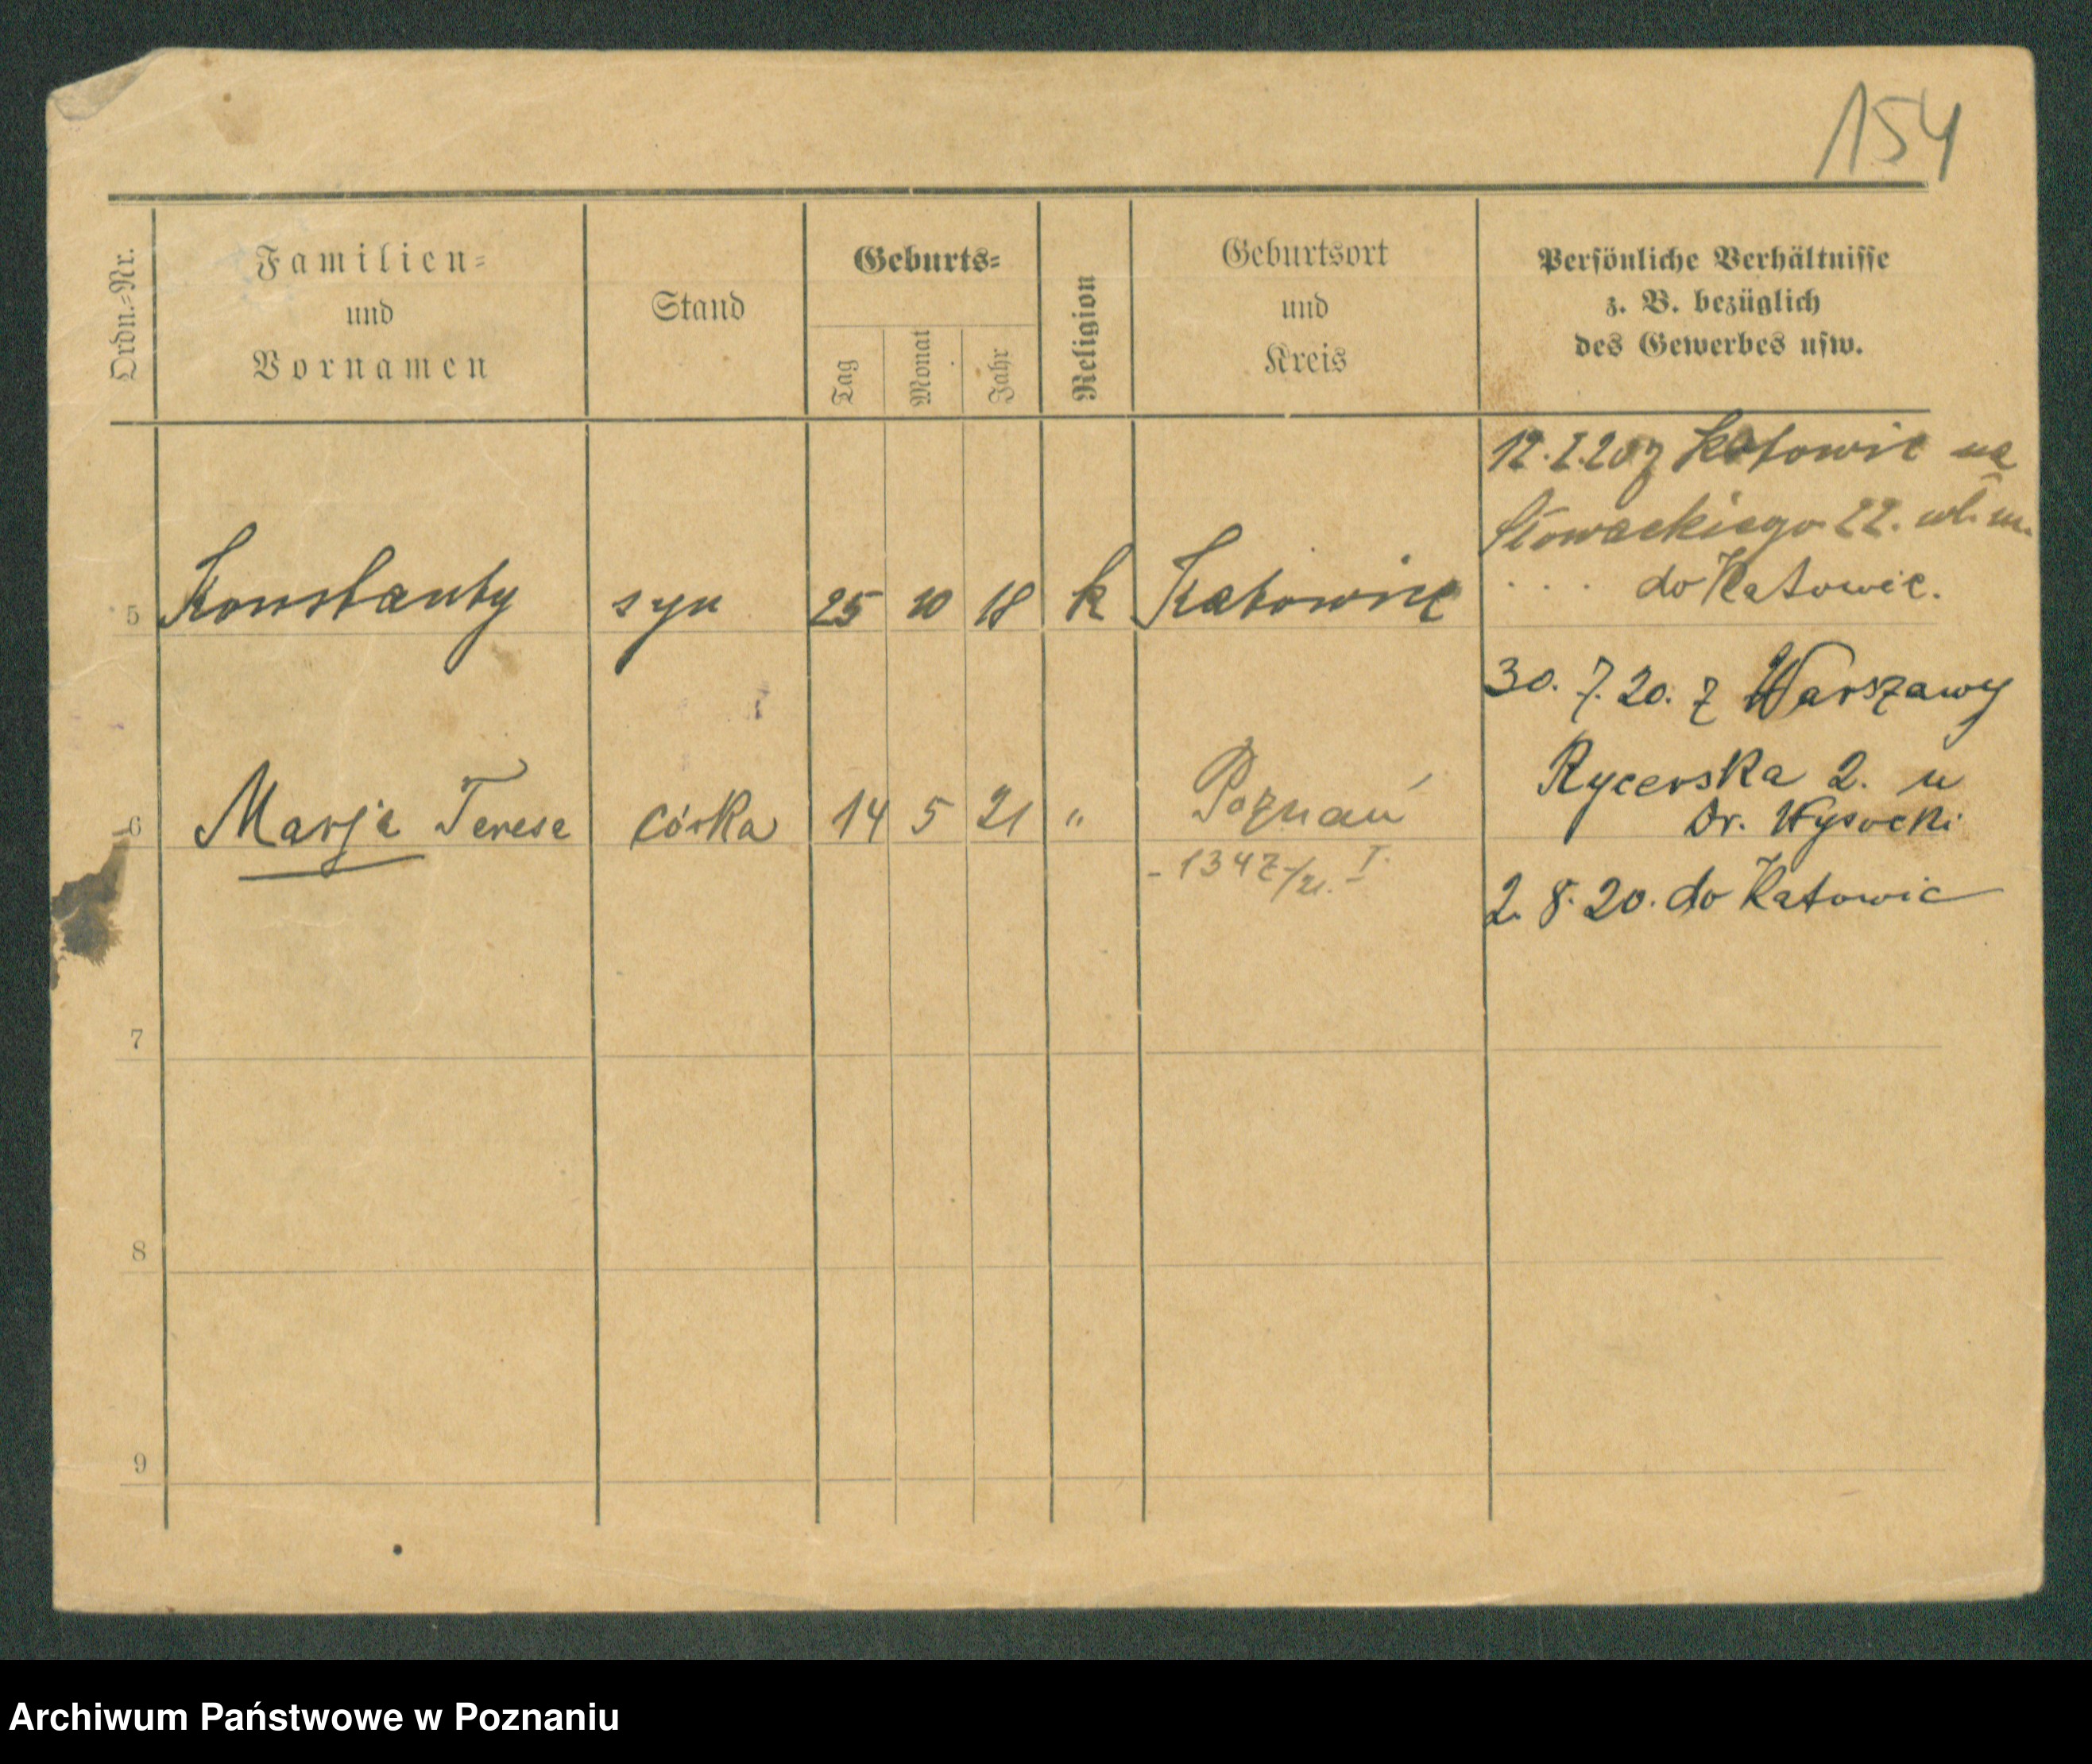 154
Ordn.=Nr.
Familien=
und
Vornamen
Stand
Geburts=
Tag
Monat
Jahr
Religion
Geburtsort
und
Kreis
Persönliche Verhältnisse
z. B. bezüglich
des Gewerbes usw.
12.I.20 z Katowic na
Słowackiego 22. wł. m.
. . . do Katowic.
5 Konstanty syn 25 10 18 k Katowice
30. 7. 20. z Warszawy
Rycerska 2. u
Dr. Wysocki
6 Marja Teresa córka 14 5 21 " Poznań
- 1347/21. I.
2. 8. 20. do Katowic
7
8
9
Archiwum Państwowe w Poznaniu